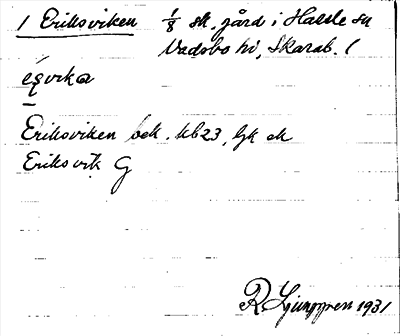 1 Eriksviken 1/8 sk. gård i Hassle sn
Vadsbo hd, Skarab. l
Eriksviken bek. kb23, Gk ek
Eriksvik G
R Ljunggren 1931